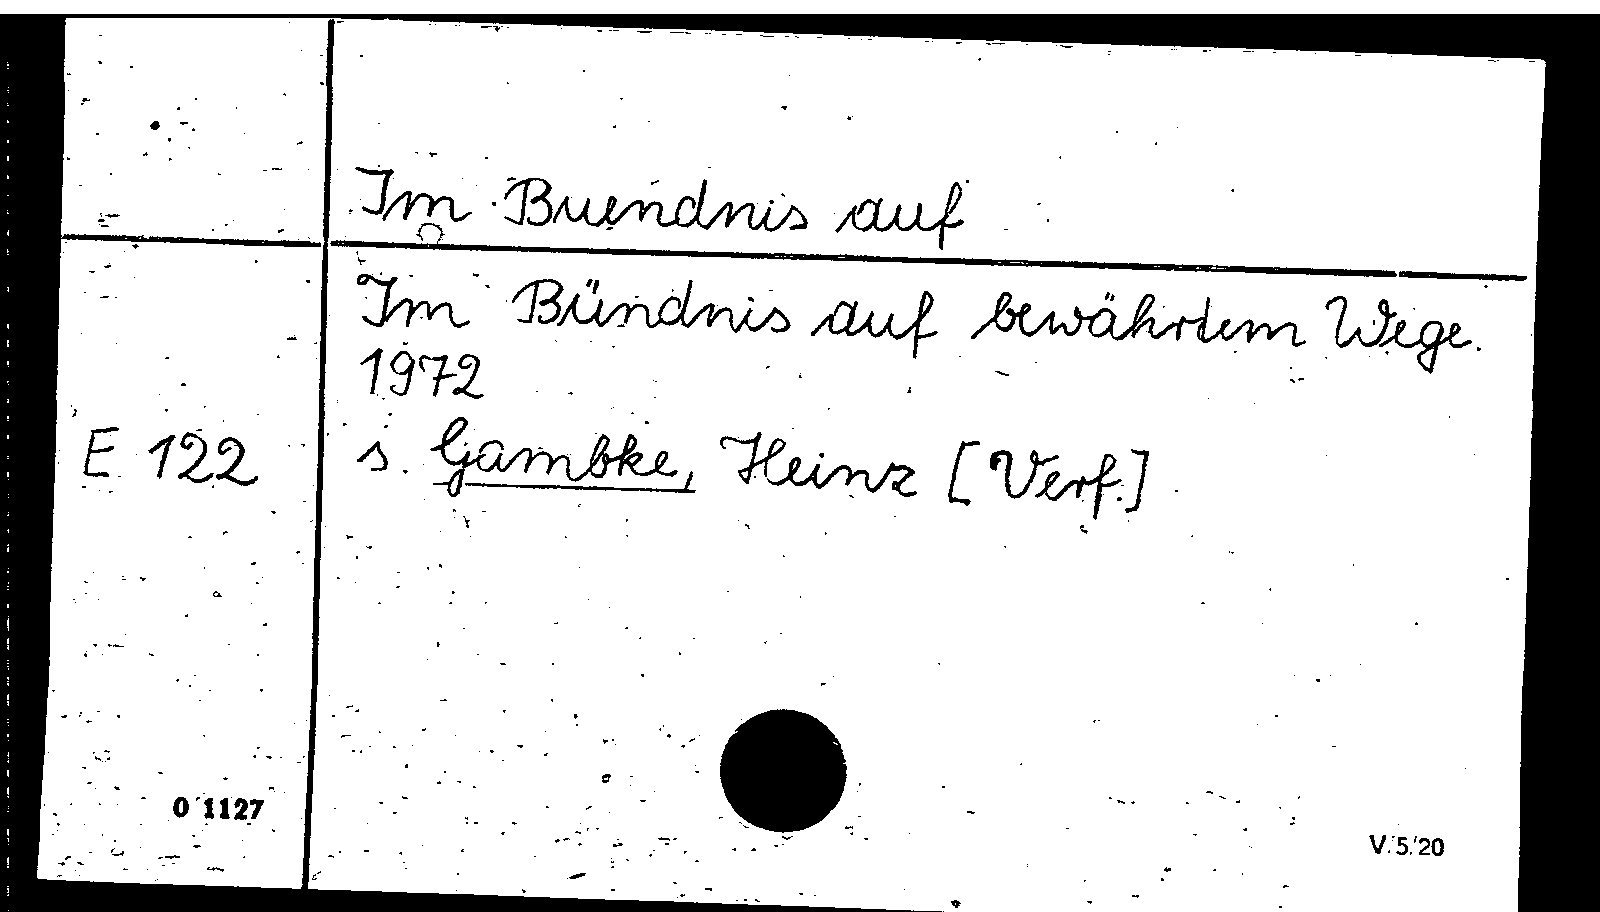 Im Buendnis auf
Im Bündnis auf bewährtem Wege.
1972
E 122 s. Gambke, Heinz [Verf.]
O 1127
V. 5. 20